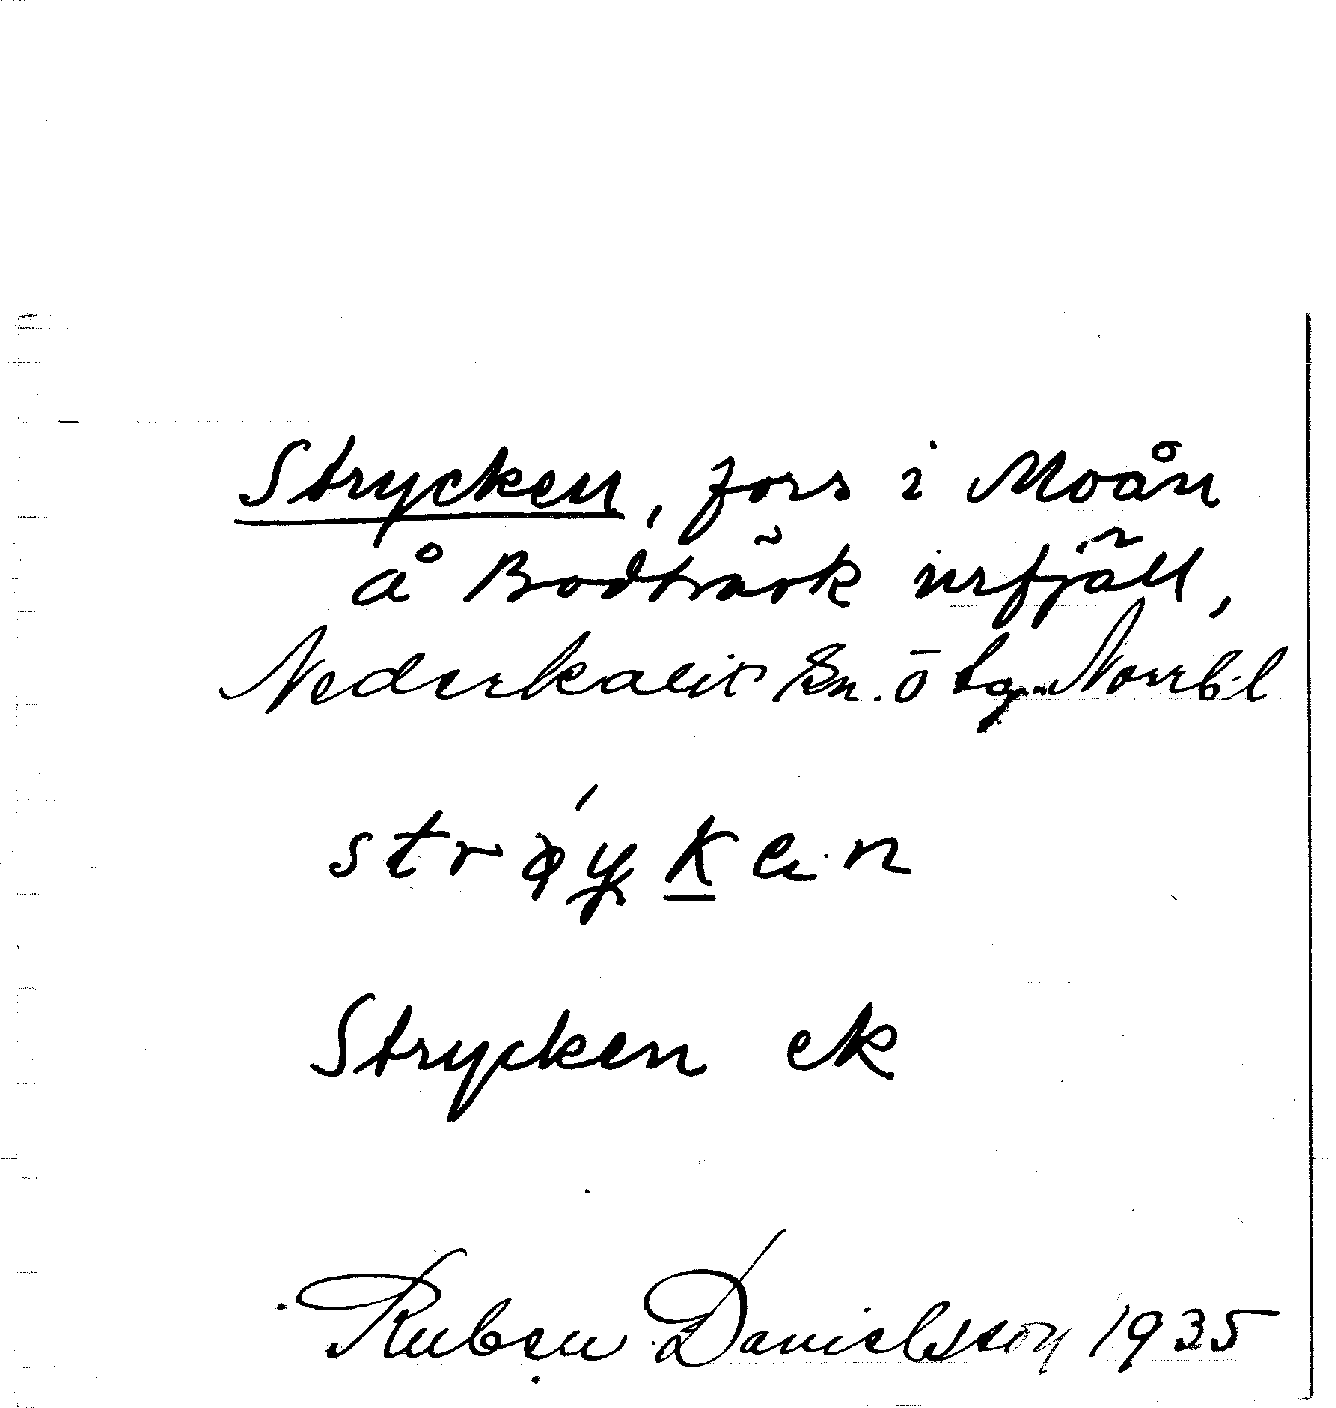 Strycken, fors i Moån
å Bodträsk urfjäll,
Nederkalix sn. Ö tg. Norrb.l
strøyken
Strycken ek
Ruben Danielsson 1935